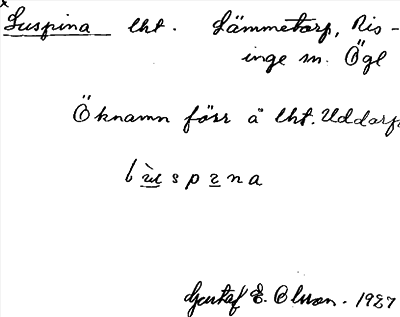 Luspina lht. Lämmetorp, Ris-
inge sn. Ögl
Öknamn förr å lht. Uddarp
lùspɪna
Gustaf E. Olsson. 1927